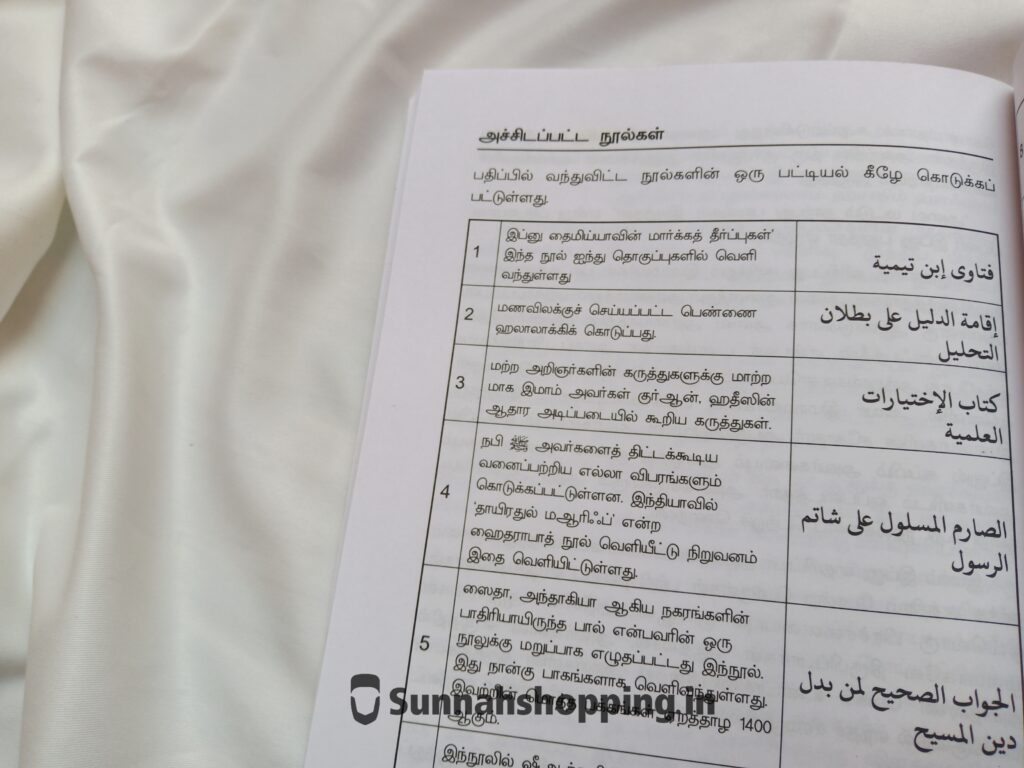 அச்சிடப்பட்ட நூல்கள்
பதிப்பில் வந்துவிட்ட நூல்களின் ஒரு பட்டியல் கீழே கொடுக்கப்
பட்டுள்ளது.
1
இப்னு தைமிய்யாவின் மார்க்கத் தீர்ப்புகள்'
இந்த நூல் ஐந்து தொகுப்புகளில் வெளி
வந்துள்ளது
فتاوى إبن تيمية
2
மணவிலக்குச் செய்யப்பட்ட பெண்ணை
ஹலாலாக்கிக் கொடுப்பது.
إقامة الدليل على بطلان
التحليل
3
மற்ற அறிஞர்களின் கருத்துகளுக்கு மாற்ற
மாக இமாம் அவர்கள் குர்ஆன், ஹதீஸின்
ஆதார அடிப்படையில் கூறிய கருத்துகள்.
كتاب الإختيارات
العلمية
4
நபி ﷺ அவர்களைத் திட்டக்கூடிய
வனைப்பற்றிய எல்லா விபரங்களும்
கொடுக்கப்பட்டுள்ளன. இந்தியாவில்
'தாயிரதுல் மஆரிஃப்' என்ற
ஹைதராபாத் நூல் வெளியீட்டு நிறுவனம்
இதை வெளியிட்டுள்ளது.
الصارم المسلول على شاتم
الرسول
5
ஸைதா, அந்தாகியா ஆகிய நகரங்களின்
பாதிரியாயிருந்த பால் என்பவரின் ஒரு
நூலுக்கு மறுப்பாக எழுதப்பட்டது இந்நூல்.
இது நான்கு பாகங்களாக வெளிவந்துள்ளது.
இவற்றின் 1400
ஆகும்.
الجواب الصحيح لمن بدل
دين المسيح
இந்நூலில்
Sunnahshopping.in